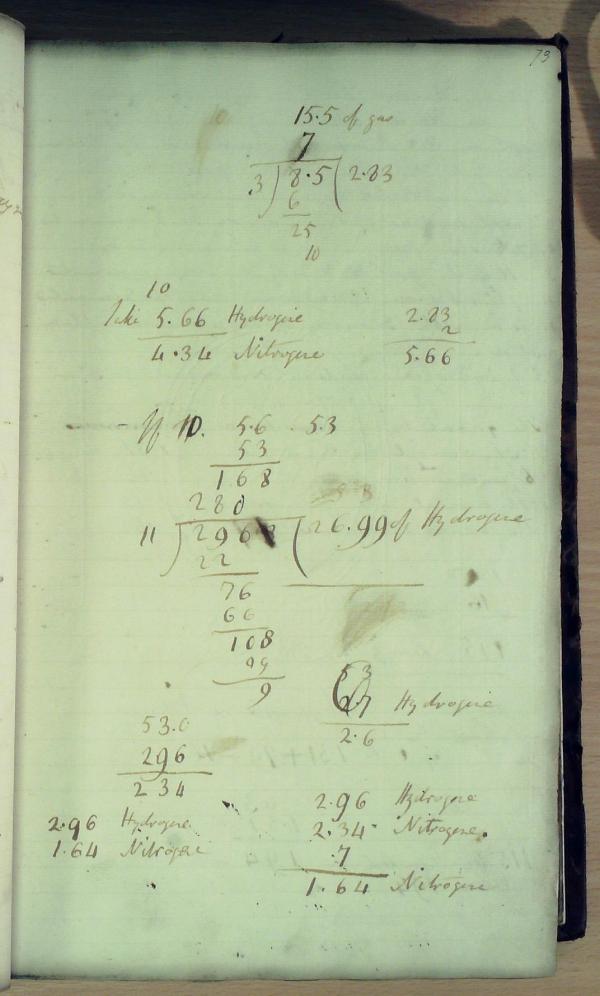 73
15.5 of gas
7
3) 8.5 (2.83
6
25
10
10
Take 5.66 Hydrogene
4.34 Nitrogene
2.83
2
5.66
If 10. 5.6 . 53
53
168
280
11) 296 ( 26.99 of Hydrogene
22
76
66
108
99
9
53
Hydrogene
2.6
53.0
296
234
2.96 Hydrogene
1.64 Nitrogene
2.96 Hydrogene
2.34 Nitrogene.
.7
1.64 Nitrogene